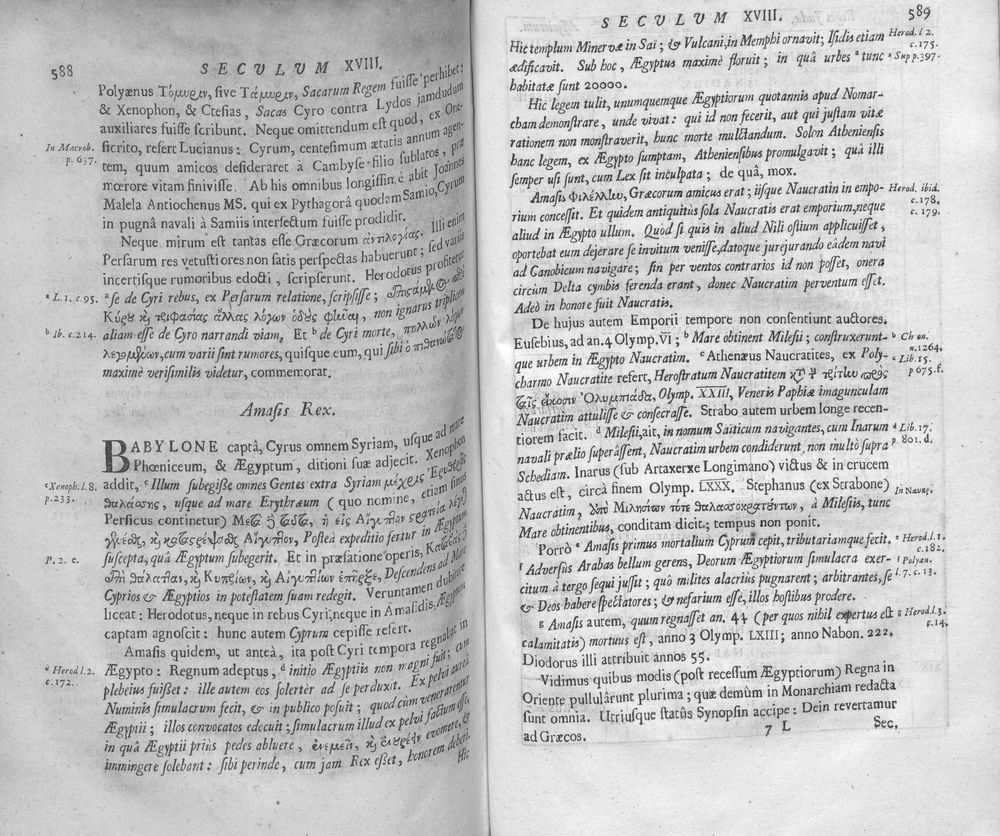 588
SECVLVM XVIII.
Polyænus Τόμυριν, sive Τάμυριν, Sacarum Regem fuisse perhibet:
& Xenophon, & Ctesias, Sacas Cyro contra Lydos jamdudum
auxiliares fuisse scribunt. Neque omittendum est quod, ex One-
In Macrob. p. 637.
sicrito, refert Lucianus: Cyrum, centesimum ætatis annum agen-
tem, quum amicos desideraret à Cambyse filio sublatos, præ
mœrore vitam finivisse. Ab his omnibus longissimè abit Joannes
Malela Antiochenus MS. qui ex Pythagorâ quodam Samio, Cyrum
in pugnâ navali à Samiis interfectum fuisse prodidit.
Neque mirum est tantas esse Græcorum ἀντιλογίας. Illi enim
Persarum res vetustiores non satis perspectas habuerunt; sed variis
incertisque rumoribus edocti, scripserunt. Herodotus profitetur
a L. 1. c. 95.
a se de Cyri rebus, ex Persarum relatione, scripsisse;
Κύρου καὶ τριφασίας ἄλλας λόγων ὁδοὺς φῆναι, non ignarus triplicem
b Ib. c. 214.
aliam esse de Cyro narrandi viam. Et b de Cyri morte, πολλῶν λόγων
λεγομένων, cum varii sint rumores, quisque eum, qui sibi ὁ πιθανώτατος
maximè verisimilis videtur, commemorat.
Amasis Rex.
BABYLONE captâ, Cyrus omnem Syriam, usque ad mare
Phœniceum, & Ægyptum, ditioni suæ adjecit. Xenophon
c Xenoph. l. 8. p. 233.
addit, c Illum subegisse omnes Gentes extra Syriam μέχρις Ἐρυθρᾶς
θαλάσσης, usque ad mare Erythræum (quo nomine, etiam sinus
Persicus continetur) Μετὰ δὲ ταῦτα, ἡ εἰς Αἴγυπτον στρατεία λέγεται
γενέσθαι, καὶ καταστρέψασθαι Αἴγυπτον, Postea expeditio fertur in Ægyptum
P. 2. c.
suscepta, quâ Ægyptum subegerit. Et in præfatione operis,
ἐπὶ θάλατταν, καὶ Κυπρίων, καὶ Αἰγυπτίων ἐπῆρξε, Descendens ad Mare
Cyprios & Ægyptios in potestatem suam redegit. Veruntamen dubitare
liceat: Herodotus, neque in rebus Cyri, neque in Amasidis, Ægyptum
captam agnoscit: hunc autem Cyprum cepisse refert.
Amasis quidem, ut anteà, ita post Cyri tempora regnabat in
d Herod l. 2. c. 172.
Ægypto: Regnum adeptus, d initio Ægyptiis non magni fuit; cum
plebeius fuisset: ille autem eos solerter ad se perduxit. Ex pelvi aureâ
Numinis simulacrum fecit, & in publico posuit; quod cùm venerarentur
Ægyptii; illos convocatos edocuit; simulacrum illud ex pelvi factum esse,
in quâ Ægyptii priùs pedes abluere, ἐνεμεῖν, καὶ ἐνουρέειν evomere, &
immingere solebant: sibi perinde, cum jam Rex esset, honorem deberi.
Hic
SECULUM XVIII.
589
Hic templum Minervæ in Sai; & Vulcani, in Memphi ornavit; Isidis etiam
Herod. l 2. c. 175.
ædificavit. Sub hoc, Ægyptus maximè floruit; in quâ urbes a tunc
a Sup p. 397.
habitatæ sunt 20000.
Hic legem tulit, unumquemque Ægyptiorum quotannis apud Nomar-
cham demonstrare, unde vivat: qui id non fecerit, aut qui justam vitæ
rationem non monstraverit, hunc morte mulctandum. Solon Atheniensis
hanc legem, ex Ægypto sumptam, Atheniensibus promulgavit; quâ illi
semper usi sunt, cum Lex sit inculpata; de quâ, mox.
Amasis Φιλέλλην, Græcorum amicus erat; iisque Naucratin in empo-
Herod. ibid. c. 178. c. 179.
rium concessit. Et quidem antiquitùs sola Naucratis erat emporium, neque
aliud in Ægypto ullum. Quòd si quis in aliud Nili ostium applicuisset,
oportebat eum dejerare se invitum venisse, datoque jurejurando eâdem navi
ad Canobicum navigare; sin per ventos contrarios id non posset, onera
circùm Delta cymbis ferenda erant, donec Naucratim perventum esset.
Adeò in honore fuit Naucratis.
De hujus autem Emporii tempore non consentiunt auctores.
Eusebius, ad an. 4 Olymp. VI; b Mare obtinent Milesii; construxerunt-
b Chron. n. 1264.
que urbem in Ægypto Naucratim. c Athenæus Naucratites, ex Poly-
c Lib. 15. p 675. f.
charmo Naucratite refert, Herostratum Naucratitem κατὰ τὴν τρίτην πρὸς
ταῖς εἴκοσιν Ὀλυμπιάδα, Olymp. XXIII, Veneris Paphiæ imagunculam
Naucratim attulisse & consecrasse. Strabo autem urbem longe recen-
tiorem facit. d Milesii, ait, in nomum Saiticum navigantes, cum Inarum
d Lib. 17. p. 801. d.
navali prælio superâssent, Naucratim urbem condiderunt, non multò supra
Schediam. Inarus (sub Artaxerxe Longimano) victus & in crucem
actus est, circà finem Olymp. LXXX. Stephanus (ex Strabone)
In Naucr.
Naucratim, ὑπὸ Μιλησίων τότε θαλασσοκρατούντων, à Milesiis, tunc
Mare obtinentibus, conditam dicit; tempus non ponit.
Porrò e Amasis primus mortalium Cyprum cepit, tributariamque fecit.
e Herod. l. 1. c. 182.
f Adversus Arabas bellum gerens, Deorum Ægyptiorum simulacra exer-
f Polyæn. l. 7. c. 13.
citum à tergo sequi jussit; quò milites alacriùs pugnarent; arbitrantes, se
& Deos habere spectatores; & nefarium esse, illos hostibus prodere.
g Amasis autem, quum regnasset an. 44 (per quos nihil expertus est
g Herod. l. 3. c. 14.
calamitatis) mortuus est, anno 3 Olymp. LXIII; anno Nabon. 222.
Diodorus illi attribuit annos 55.
Vidimus quibus modis (post recessum Ægyptiorum) Regna in
Oriente pullulârunt plurima; quæ demùm in Monarchiam redacta
sunt omnia. Utriusque statûs Synopsin accipe: Dein revertamur
ad Græcos.
7 L
Sec.